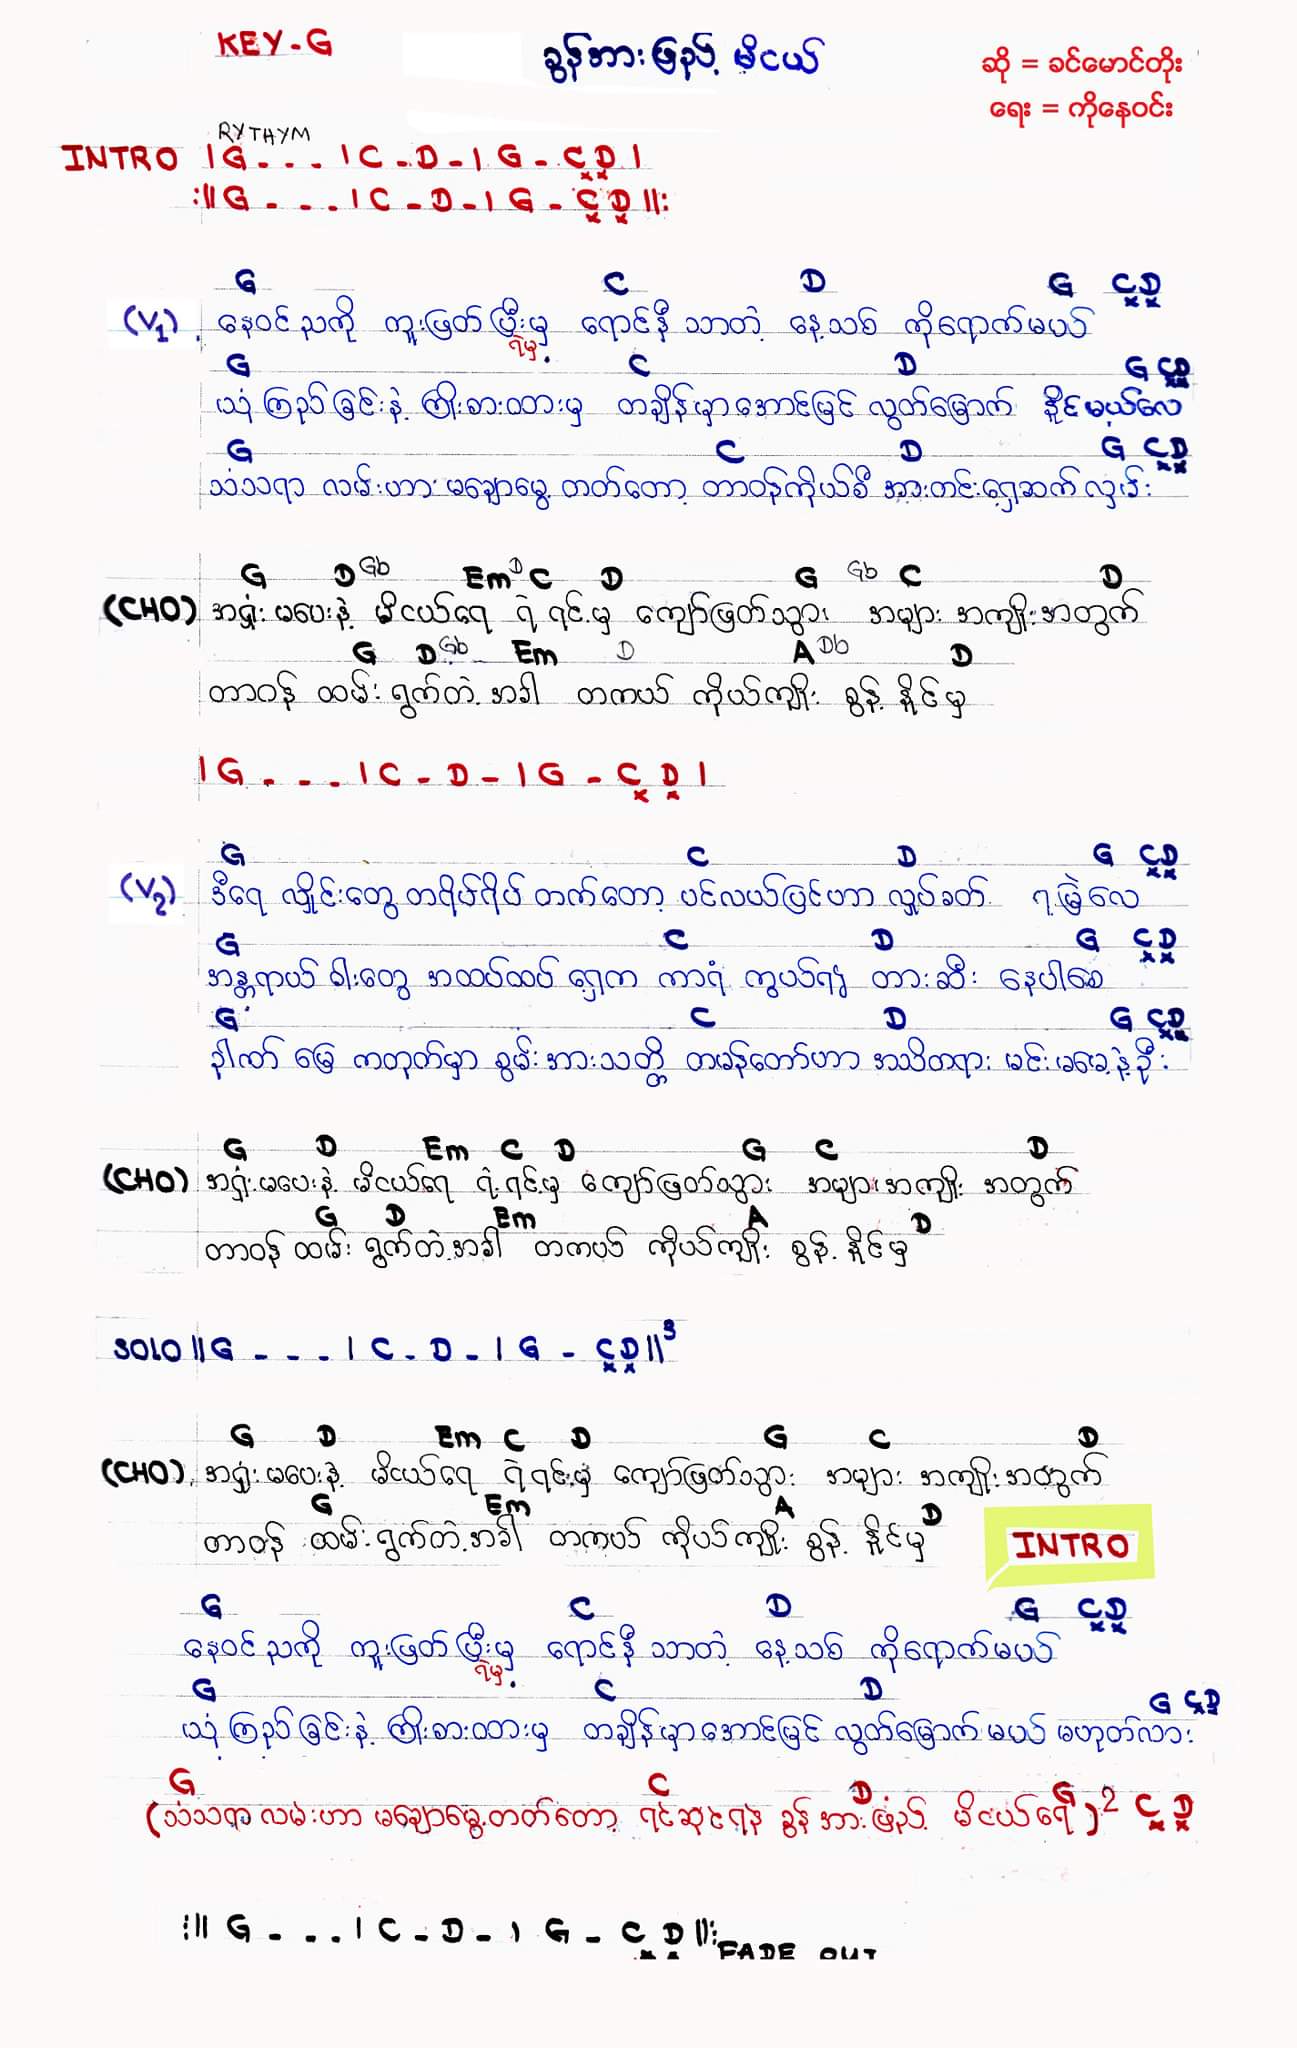 KEY-G
ခွန်အားဖြည့် မိငယ်
ဆို = ခင်မောင်တိုး
ရေး = ကိုနေဝင်း
RYTHYM
INTRO |G - - - | C - D - | G - C D |
:||G - - - | C - D - | G - C D ||:
G C D G C D
(V1) နေဝင်ညကို ကူးဖြတ်ပြီးမှ ရောင်နီသာတဲ့ နေ့သစ် ကိုရောက်မယ်
ရဲမှ
G C D G C D
ယုံကြည်ခြင်းနဲ့ ကြိုးစားထားမှ တချိန်မှာအောင်မြင် လွတ်မြောက် နိုင်မယ်လေ
G C D G C D
သံသရာ လမ်းဟာ မချောမွေ့ တတ်တော့ တာဝန်ကိုယ်စီ အားတင်းရှေ့ဆက်လှမ်း
G D Gb Em D C D G Gb C D
(CHO) အရှုံးမပေးနဲ့ မိငယ်ရေ ရဲရင့်မှ ကျော်ဖြတ်သွား အများ အကျိုးအတွက်
G D Gb Em D A Db D
တာဝန် ထမ်းရွက်တဲ့အခါ တကယ် ကိုယ်ကျိုး စွန့်နိုင်မှ
|G - - - | C - D - | G - C D |
G C D G C D
(V2) ဒီရေ လှိုင်းတွေ တရိပ်ရိပ် တက်တော့ ပင်လယ်ပြင်ဟာ လှုပ်ခတ် မြဲလေ
G C D G C D
အန္တရာယ် ဝါးတွေ အထပ်ထပ် ရှေ့က ကာရံ ကွယ်ရုံ တားဆီး နေပါစေ
G C D G C D
ဉာဏ် မြေ ကတုတ်မှာ စွမ်းအားသတ္တိ တမန်တော်ဟာ အသိတရား မင်းမမေ့နဲ့ဦး
G D Em C D G C D
(CHO) အရှုံးမပေးနဲ့ မိငယ်ရေ ရဲရင့်မှ ကျော်ဖြတ်သွား အများအကျိုး အတွက်
G D Em A D
တာဝန် ထမ်းရွက်တဲ့အခါ တကယ် ကိုယ်ကျိုး စွန့်နိုင်မှ
SOLO ||G - - - | C - D - | G - C D||3
G D Em C D G C D
(CHO) အရှုံးမပေးနဲ့ မိငယ်ရေ ရဲရင့်မှ ကျော်ဖြတ်သွား အများ အကျိုးအတွက်
G Em A D
တာဝန် ထမ်းရွက်တဲ့အခါ တကယ် ကိုယ်ကျိုး စွန့်နိုင်မှ
INTRO
G C D G C D
နေဝင်ညကို ကူးဖြတ်ပြီးမှ ရောင်နီသာတဲ့ နေ့သစ် ကိုရောက်မယ်
ရဲမှ
G C D G C D
ယုံကြည်ခြင်းနဲ့ ကြိုးစားထားမှ တချိန်မှာအောင်မြင် လွတ်မြောက်မယ် မဟုတ်လား
G C D G
(သံသရာလမ်းဟာ မချောမွေ့တတ်တော့ ရင်ဆိုင်ရန် ခွန်အားဖြည့် မိငယ်ရေ)2 C D
:|| G - - - | C - D - | G - C D ||: FADE OUT